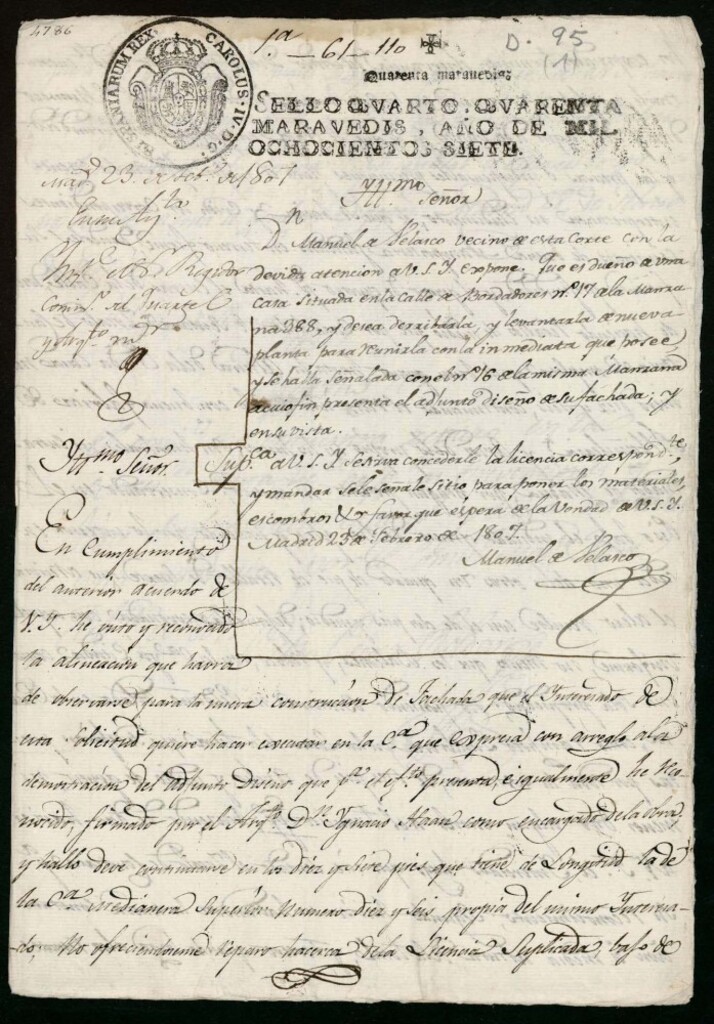 4786
1ª-61-110
D. 95
(1)
HISPANIARUM REX. CAROLUS. IV. D. G.
Quarenta maravedis
SELLO QVARTO, QVARENTA
MARAVEDIS, AÑO DE MIL
OCHOCIENTOS SIETE.
Madd 23 de feb.º de 1807
En su Ay.to
Inf.e el Sr Regidor
Comis.º del Quartel
y Arqto mr
Yllmo Señor
Dn Manuel de Velasco vecino de esta Corte con la
devida atencion a V.S.Y. expone: Que es dueño de una
casa situada en la calle de Bordadores nº 17 de la Manza
na 388, y desea derribarla, y levantarla de nueva
planta para reunirla con la inmediata que posee,
y se halla señalada con el nº 16 de la misma Manzana
a cuio fin presenta el adjunto diseño de su fachada; y
en su vista.
Supca a V.S.Y. se sirva concederle la licencia correspondte,
y mandar se le señale sitio para poner los materiales,
escombros &ª favor que espera de la Vondad de V.S.Y.
Madrid 23 de febrero de 1807.
Manuel de Velasco
Yllmo Señor.
En Cumplimiento
del anterior acuerdo de
V.Y. he visto y reconocido
la alineacion que havra
de observarse para la nueva construccion de Fachada que el Interesado de
esta solicitud quiere hacer executar en la Cª que expresa con arreglo a la
demostracion del adjunto Diseño que pª el efto presenta, e igualmente he reco
nocido, firmado por el Arqto Dn Ygnacio Haan como encargado de la obra,
y hallo deve continuarse en los diez y siete pies que tiene de Longitud la de
la Cª Medianera Superior Numero diez y seis propia del mismo Interesa-
do; No ofreciendoseme reparo hacerca de la Licencia Suplicada, bajo de